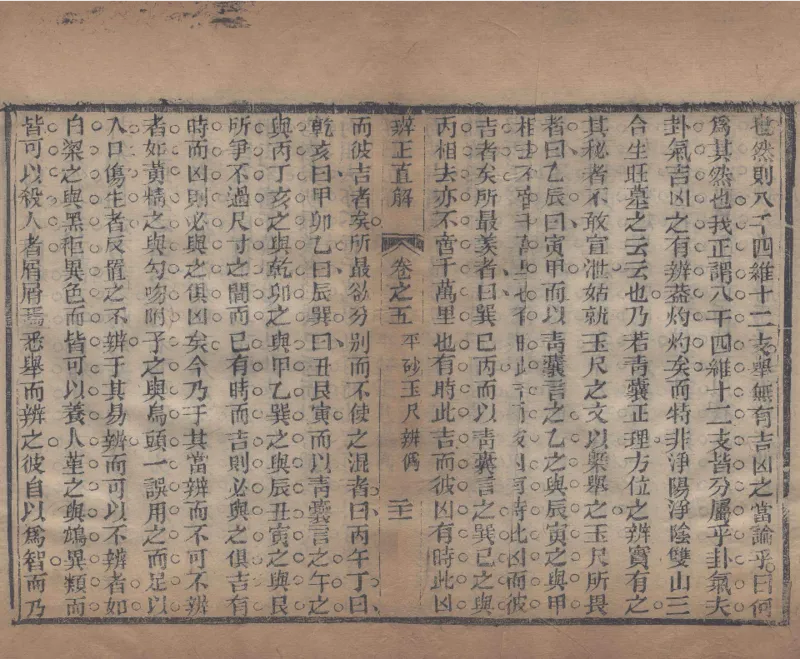 也然則八干四維十二支舉無有吉凶之當論乎曰何
爲其然也我正謂八干四維十二支皆分屬乎卦氣夫
卦氣吉凶之有辨葢灼灼矣而特非淨陽淨陰雙山三
合生旺墓之云云也乃若靑囊正理方位之辨實有之
其秘者不敢宣泄姑就玉尺之文以槩舉之玉尺所畏
者曰乙辰曰寅甲而以靑囊言之乙之與辰寅之與甲
相去不啻千萬里也有時此吉而彼凶有時此凶而彼
吉者矣所最羨者曰巽巳丙而以靑囊言之巽巳之與
丙相去亦不啻千萬里也有時此吉而彼凶有時此凶
辨正直解 卷之五 平砂玉尺辨僞
而彼吉者矣所最欲分别而不使之混者曰丙午丁曰
乾亥曰甲卯乙曰辰巽曰丑艮寅而以靑囊言之午之
與丙丁亥之與乾卯之與甲乙巽之與辰丑寅之與艮
所爭不過尺寸之間而已有時而吉則必與之俱吉有
時而凶則必與之俱凶矣今乃于其當辨而不可不辨
者如黃精之與勾吻附子之與烏頭一誤用之而足以
入口傷生者反置之不辨于其易辨而可以不辨者如
白粱之與黑秬異色而皆可以養人堇之與鴆異類而
皆可以殺人者屑屑焉悉舉而辨之彼自以爲智而乃